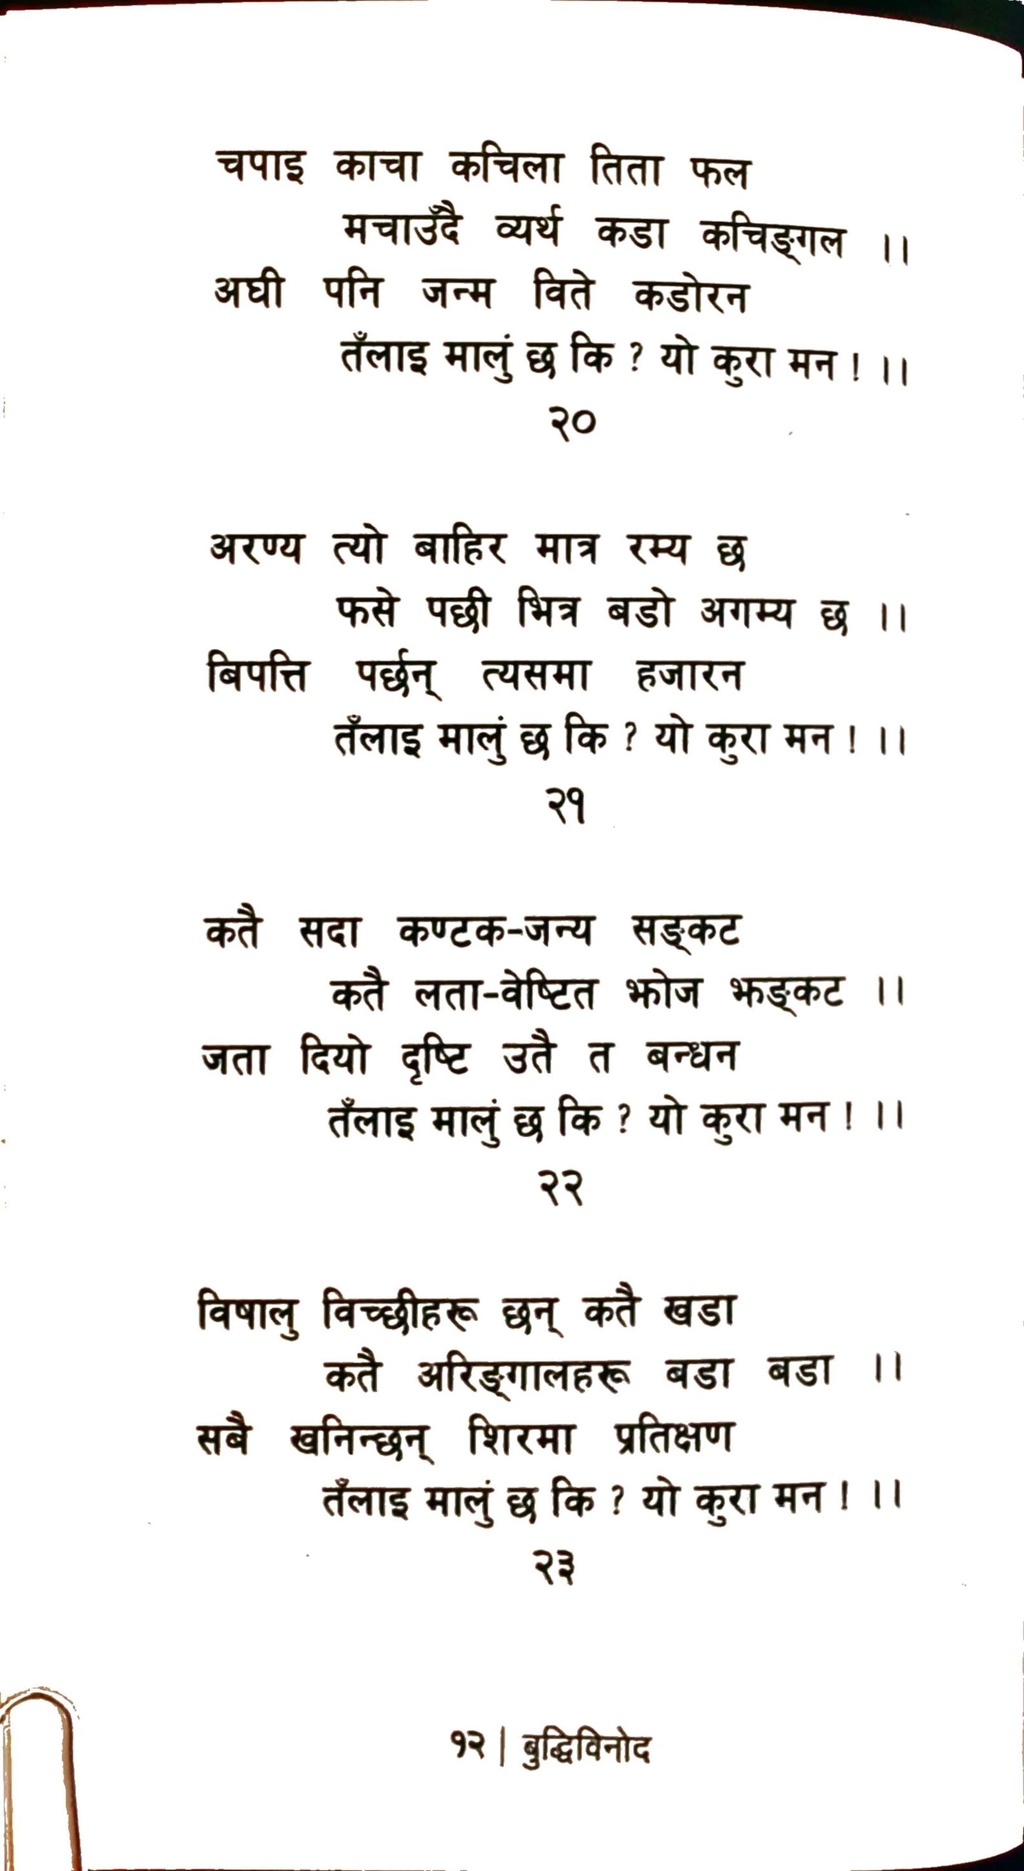 चपाइ काचा कचिला तिता फल
मचाउँदै व्यर्थ कडा कचिङ्गल ।।
अघी पनि जन्म विते कडोरन
तँलाइ मालुं छ कि ? यो कुरा मन ! ।।
२०
अरण्य त्यो बाहिर मात्र रम्य छ
फसे पछी भित्र बडो अगम्य छ ।।
बिपत्ति पर्छन् त्यसमा हजारन
तँलाइ मालुं छ कि ? यो कुरा मन ! ।।
२१
कतै सदा कण्टक-जन्य सङ्कट
कतै लता-वेष्टित झोज झङ्कट ।।
जता दियो दृष्टि उतै त बन्धन
तँलाइ मालुं छ कि ? यो कुरा मन ! ।।
२२
विषालु विच्छीहरू छन् कतै खडा
कतै अरिङ्गालहरू बडा बडा ।।
सबै खनिन्छन् शिरमा प्रतिक्षण
तँलाइ मालुं छ कि ? यो कुरा मन ! ।।
२३
१२ | बुद्धिविनोद